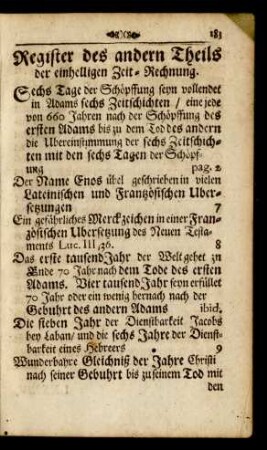 183
Register des andern Theils
der einhelligen Zeit-Rechnung.
Sechs Tage der Schöpffung seyn vollendet
in Adams sechs Zeitschichten / eine jede
von 660 Jahren nach der Schöpffung des
ersten Adams bis zu dem Tod des andern
die Ubereinstimmung der sechs Zeitschich-
ten mit den sechs Tagen der Schöpf-
ung pag. 2
Der Name Enos übel geschrieben in vielen
Lateinischen und Französischen Uber-
setzungen 7
Ein gefährliches Merckzeichen in einer Fran-
zösischen Ubersetzung des Neuen Testa-
ments Luc. III, 36. 8
Das erste tausend Jahr der Welt gehet zu
Ende 70 Jahr nach dem Tode des ersten
Adams. Vier tausend Jahr seyn erfüllet
70 Jahr oder ein wenig hernach nach der
Gebuhrt des andern Adams ibid.
Die sieben Jahr der Dienstbarkeit Jacobs
bey Laban/ und die sechs Jahre der Dienst-
barkeit eines Hebreers 9
Wunderbahre Gleichniß der Jahre Christi
nach seiner Gebuhrt bis zu seinem Tod mit
den